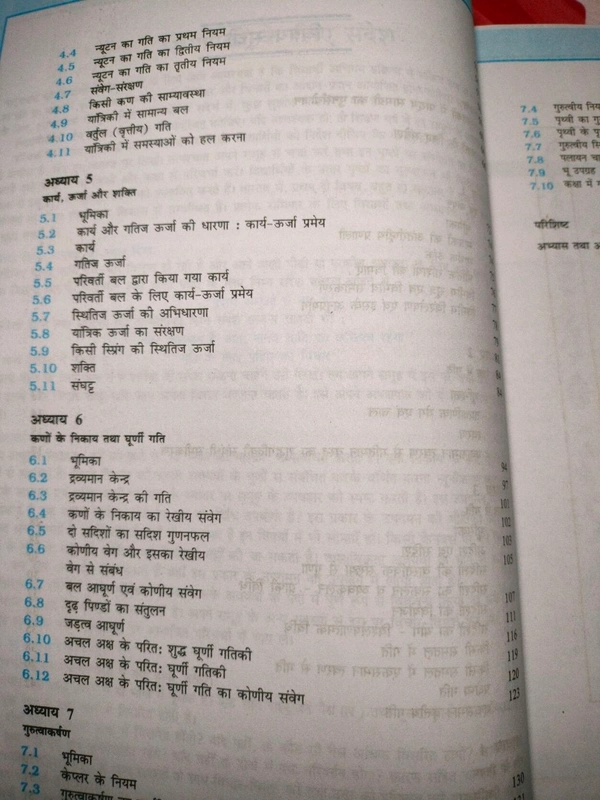 4.4 न्यूटन का गति का प्रथम नियम
4.5 न्यूटन का गति का द्वितीय नियम
4.6 न्यूटन का गति का तृतीय नियम
4.7 संवेग-संरक्षण
4.8 किसी कण की साम्यावस्था
4.9 यांत्रिकी में सामान्य बल
4.10 वर्तुल (वृत्तीय) गति
4.11 यांत्रिकी में समस्याओं को हल करना
अध्याय 5
कार्य, ऊर्जा और शक्ति
5.1 भूमिका
5.2 कार्य और गतिज ऊर्जा की धारणा : कार्य-ऊर्जा प्रमेय
5.3 कार्य
5.4 गतिज ऊर्जा
5.5 परिवर्ती बल द्वारा किया गया कार्य
5.6 परिवर्ती बल के लिए कार्य-ऊर्जा प्रमेय
5.7 स्थितिज ऊर्जा की अभिधारणा
5.8 यांत्रिक ऊर्जा का संरक्षण
5.9 किसी स्प्रिंग की स्थितिज ऊर्जा
5.10 शक्ति
5.11 संघट्ट
अध्याय 6
कणों के निकाय तथा घूर्णी गति
6.1 भूमिका 94
6.2 द्रव्यमान केन्द्र 97
6.3 द्रव्यमान केन्द्र की गति 101
6.4 कणों के निकाय का रेखीय संवेग 102
6.5 दो सदिशों का सदिश गुणनफल 103
6.6 कोणीय वेग और इसका रेखीय 105
वेग से संबंध
6.7 बल आघूर्ण एवं कोणीय संवेग 107
6.8 दृढ़ पिण्डों का संतुलन 111
6.9 जड़त्व आघूर्ण 116
6.10 अचल अक्ष के परितः शुद्ध घूर्णी गतिकी 119
6.11 अचल अक्ष के परितः घूर्णी गतिकी 120
6.12 अचल अक्ष के परितः घूर्णी गति का कोणीय संवेग 123
अध्याय 7
गुरुत्वाकर्षण
7.1 भूमिका 130
7.2 केप्लर के नियम
7.3
7.4 गुरुत्वीय
7.5 पृथ्वी का
7.6 पृथ्वी के
7.7 गुरुत्वीय
7.8 पलायन
7.9 भू उपग्रह
7.10 कक्षा में
परिशिष्ट
अभ्यास तथा